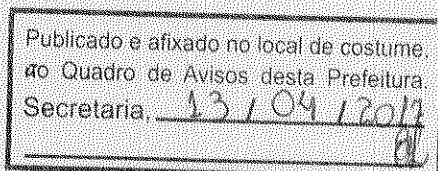 Publicado e afixado no local de costume,
ao Quadro de Avisos desta Prefeitura.
Secretaria, 13 / 04 / 2017